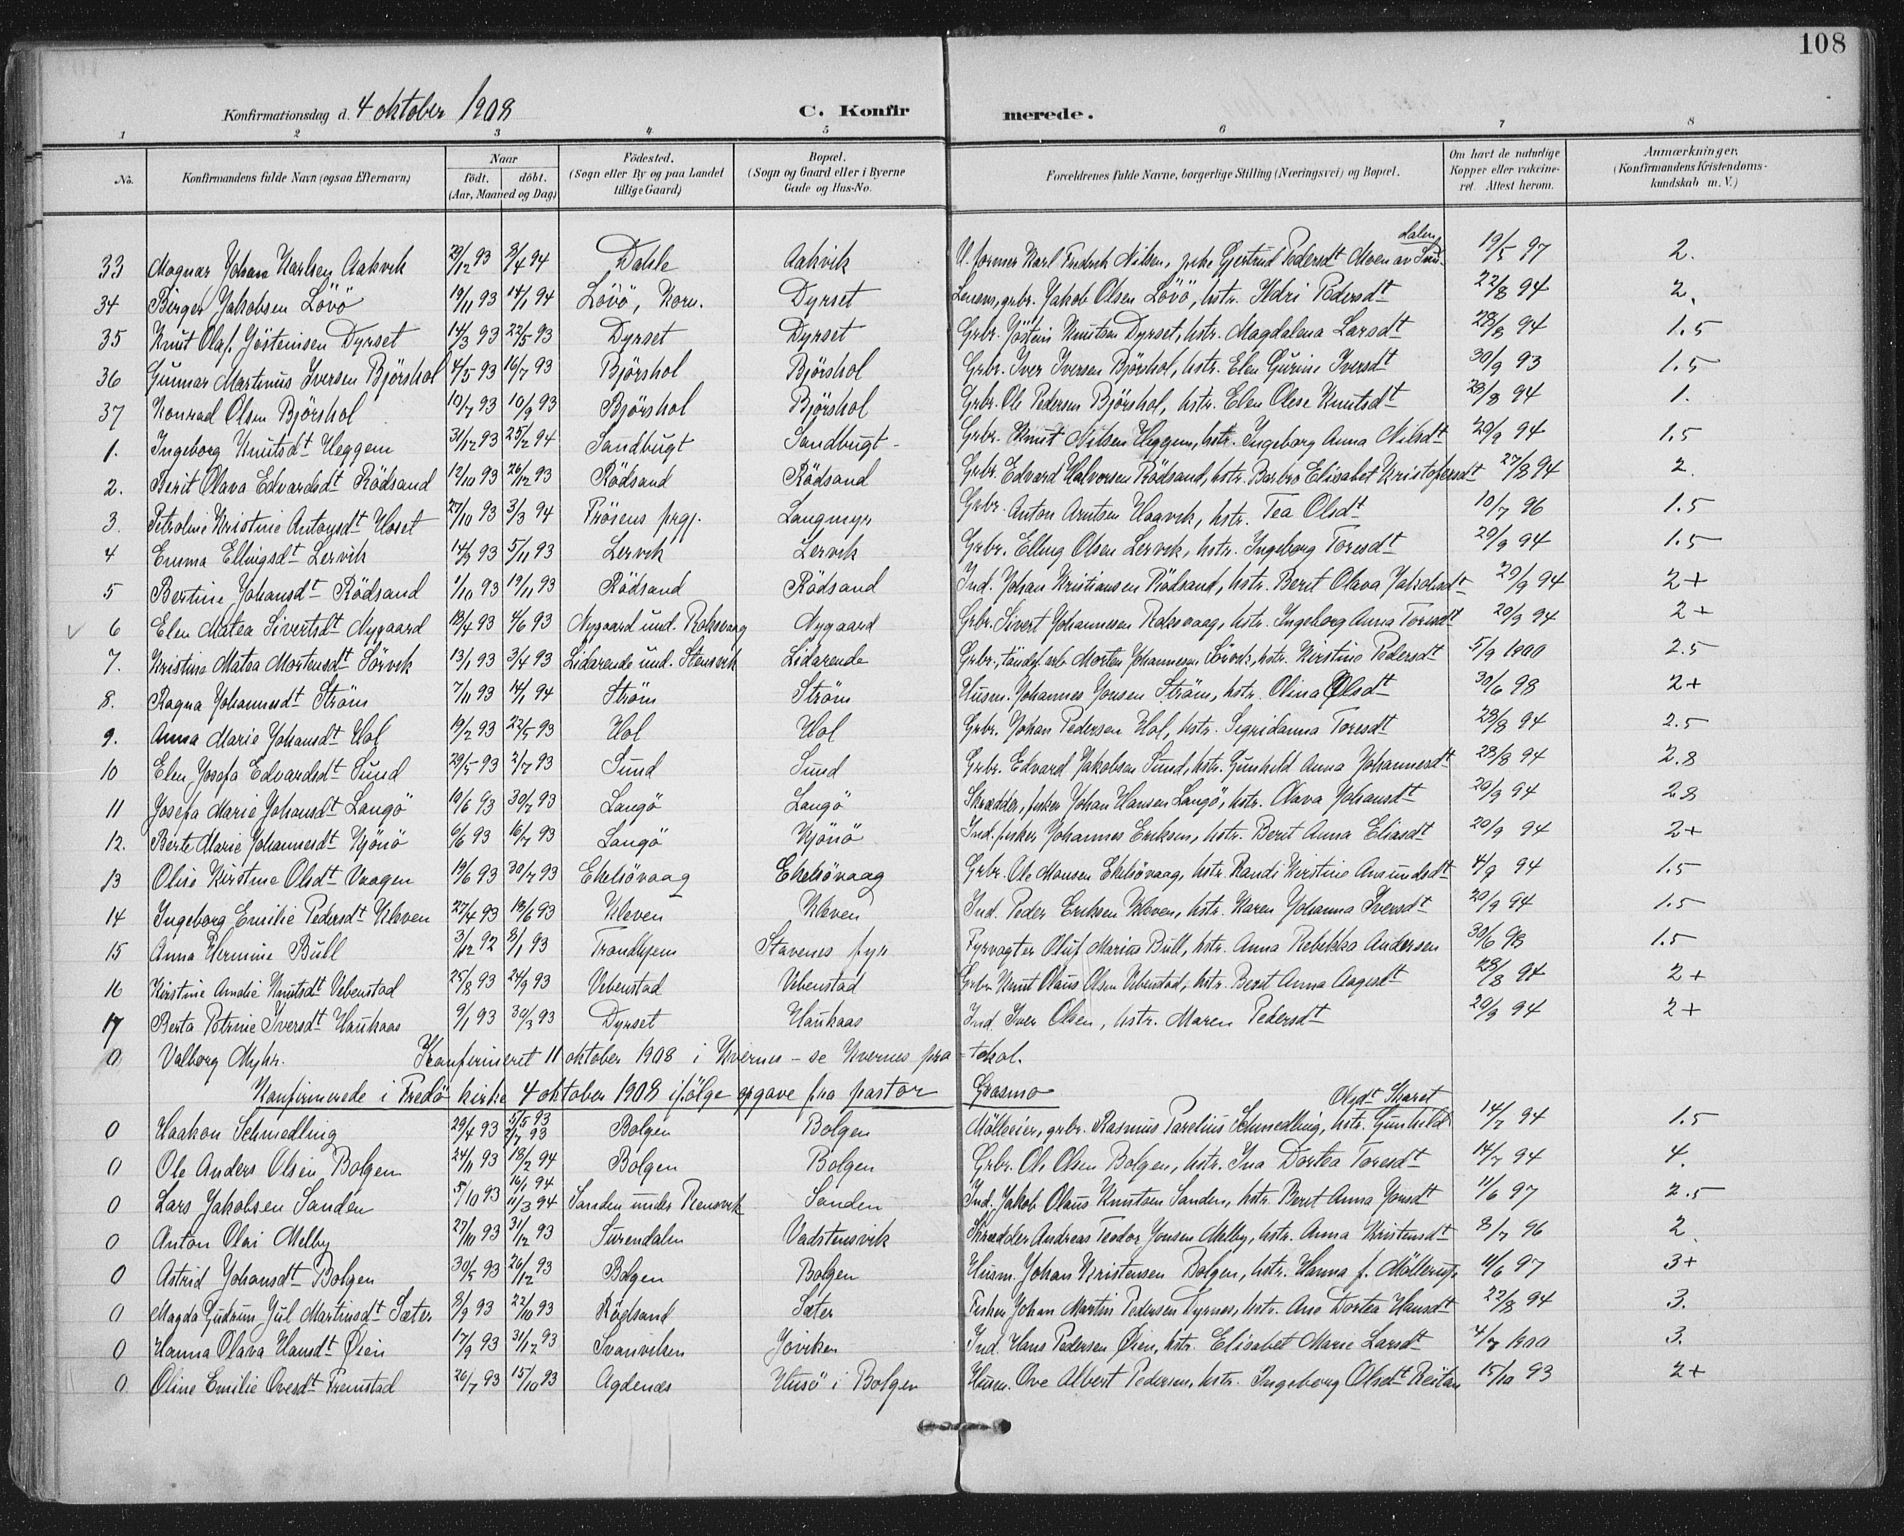 108
Konfirmationsdag d. 4 oktober 1908 C. Konfirmerede.
1 2 3 4 5 6 7 8
No. Konfirmandens fulde Navn (ogsaa Efternavn) Naar födt. döbt. (Aar, Maaned og Dag) Födested. (Sogn eller By og paa Landet tillige Gaard) Bopæl. (Sogn og Gaard eller i Byerne Gade og Hus-No. Forældrenes fulde Navne, borgerlige Stilling (Næringsvei) og Bopæl. Om havt de naturlige Kopper eller vakcineret. Attest herom. Anmærkninger. (Konfirmandens Kristendomskundskab m. V.)
33 Magnar Johan Karlsen Aakvik 29/12 93 8/4 94 Dahle Aakvik U. former Karl Fredrik Nilsen, pike Gjertrud Pedersdt Moen av Sundalen 19/5 97 2.
34 Birger Jakobsen Lövö 19/11 93 14/1 94 Lövö, Korn. Dyrset Lenens, grbr. Jakob Olsen Lövö, hstr. Ildri Pedersdt 22/8 94 2.
35 Knut Olaf Jösteinsen Dyrset 14/3 93 22/5 93 Dyrset Dyrset Grbr. Jöstein Knutsen Dyrset, hstr. Magdalena Larsdt 28/8 94 1.5
36 Gunnar Martinus Iversen Bjórshol 4/5 93 16/7 93 Bjórshol Bjórshol Grbr. Iver Iversen Bjórshol, hstr. Elen Gurine Iversdt 30/9 93 1.5
37 Konrad Olsen Bjórshol 10/7 93 10/9 93 Bjórshol Bjórshol Grbr. Ole Pedersen Bjórshol, hstr. Elen Olese Knutsdt 28/8 94 1.
1. Ingeborg Knutsdt Heggem 31/12 93 25/2 94 Sandbugt Sandbugt Grbr. Knut Nilsen Heggem, hstr. Ingeborg Anna Nilsdt 20/9 94 1.5
2. Berit Olava Edvardsdt Rödsand 12/10 93 26/12 93 Rödsand Rödsand Grbr. Edvard Halvorsen Rödsand, hstr. Barbro Elisabet Kristofersdt 27/8 94 2.
3. Petroline Kristine Antonsdt Hoset 27/10 93 3/3 94 Frösens prgj. Langmyr Grbr. Anton Arntsen Haavik, hstr. Tea Olsdt 10/7 96 1.5
4 Emma Ellingsdt Lervik 14/9 93 5/11 93 Lervik Lervik Grbr. Elling Olsen Lervik, hstr. Ingeborg Toresdt 20/9 94 1.5
5 Bertine Johansdt Rödsand 1/10 93 19/11 93 Rödsand Rödsand Ind. Johan Kristiansen Rödsand, hstr. Berit Olava Jakobsdt 20/9 94 2+
6 Elen Matea Sivertsdt Nygaard 18/4 93 4/6 93 Nygaard und. Roksvaag Nygaard Grbr. Sivert Johannesen Roksvaag, hstr. Ingeborg Anna Toresdt 20/9 94 2+
7. Kristine Matea Mortensdt Sörvik 13/1 93 3/4 93 Lidarende und. Stensvik Lidarende Grbr. Morten Johannesen Sörvik, hstr. Kirstine Pedersdt 5/9 1900 2.5
8. Ragna Johannesdt Ström 7/11 93 14/1 94 Ström Ström Husm. Johannes Jonsen Ström, hstr. Olina Olsdt 30/6 98 2+
9. Anna Marie Johansdt Hol 19/2 93 22/5 93 Hol Hol Grbr. Johan Pedersen Hol, hstr. Sigridanna Toresdt 28/8 94 2.5
10 Elen Josefa Edvardsdt Sund 29/5 93 2/7 93 Sund Sund Grbr. Edvard Jakobsen Sund, hstr. Gunhild Anna Johannesdt 28/8 94 2.8
11 Josefa Marie Johansdt Langö 19/6 93 30/7 93 Langö Langö Skrædder, fisker Johan Hansen Langö, hstr. Olava Johansdt 20/9 94 2.8
12. Berte Marie Johannesdt Kjönö 6/6 93 16/7 93 Langö Kjönö Ind. fisker Johannes Eriksen, hstr. Berit Anna Eliasdt 20/9 94 2+
13 Olise Kirstine Olsdt Vaagen 19/6 93 30/7 93 Ekelsövaag Ekelsövaag Grbr. Ole Monsen Ekelsövaag, hstr. Randi Kirstine Amundsdt 4/9 94 1.5
14 Ingeborg Emilie Pedersdt Kleven 27/4 93 18/6 93 Kleven Kleven Ind. Peder Eriksen Kleven, hstr. Karen Johanna Iversdt 20/9 94 1.5
15 Anna Hermine Bull 3/12 92 8/1 93 Trondhjem Stavenes fyr Fyrvagter Oluf Marius Bull, hstr. Anna Rebekka Andersen 30/6 98 1.5
16 Kirstine Amalie Knutsdt Vebenstad 25/8 93 24/9 93 Vebenstad Vebenstad Grbr. Knut Olaus Olsen Vebenstad, hstr. Berit Anna Aagesdt 28/8 94 2+
17 Berta Petrine Iversdt Haukaas 9/1 93 30/3 93 Dyrset Haukaas Ind. Iver Olsen, hstr. Maren Pedersdt 20/9 94 2+
0 Valborg Myhr. Konfirmeret 11 oktober 1908 i Kvernes - se Kvernes protokol.
Konfirmerede i Fredö kirke 4 oktober 1908 ifölge opgave fra pastor Grasmo
0 Haakon Schmedling 29/4 93 5/5 93 2/7 93 Bolgen Bolgen Mölleeier, grbr. Rasmus Parelius Schmedling, hstr. Gunhild Olsdt Skaret 14/7 94 1.5
0 Ole Anders Olsen Bolgen 24/11 93 18/2 94 Bolgen Bolgen Grbr. Ole Olsen Bolgen, hstr. Ina Dortea Toresdt 14/7 94 4.
0 Lars Jakobsen Sanden 5/10 93 16/1 94 11/3 94 Sanden under Rensvik Sanden Ind. Jakob Olaus Knutsen Sanden, hstr. Beret Anna Jonsdt 11/6 97 2.5
0 Anton Olai Melby 27/10 93 31/12 93 Surendalen Vadstensvik Skrædder Andreas Teodor Jonsen Melby, hstr. Anna Kristensdt 8/7 96 2
0 Astrid Johansdt Bolgen 30/5 93 26/12 93 Bolgen Bolgen Husm. Johan Kristensen Bolgen, hstr. Hanna f. Möllerup. 11/6 97 3+
0 Magda Gudrun Jul Martinsdt Sæter 8/9 93 22/10 93 Rödsand Sæter Fisker Johan Martin Pedersen Tyrnes, hstr. Ane Dortea Hansdt 22/8 94 3.
0 Hanna Olava Hansdt Öien 17/9 93 31/12 93 Svanviken Jöviken Ind. Hans Pedersen Öien, hstr. Elisabet Marie Larsdt 4/7 1900 3.
0 Oline Emilie Ovesdt Fremstad 26/7 93 15/10 93 Agdenes Husö i Bolgen Husm. Ove Albert Pedersen, hstr. Ingeborg Olsdt Reitan 15/10 93 2+